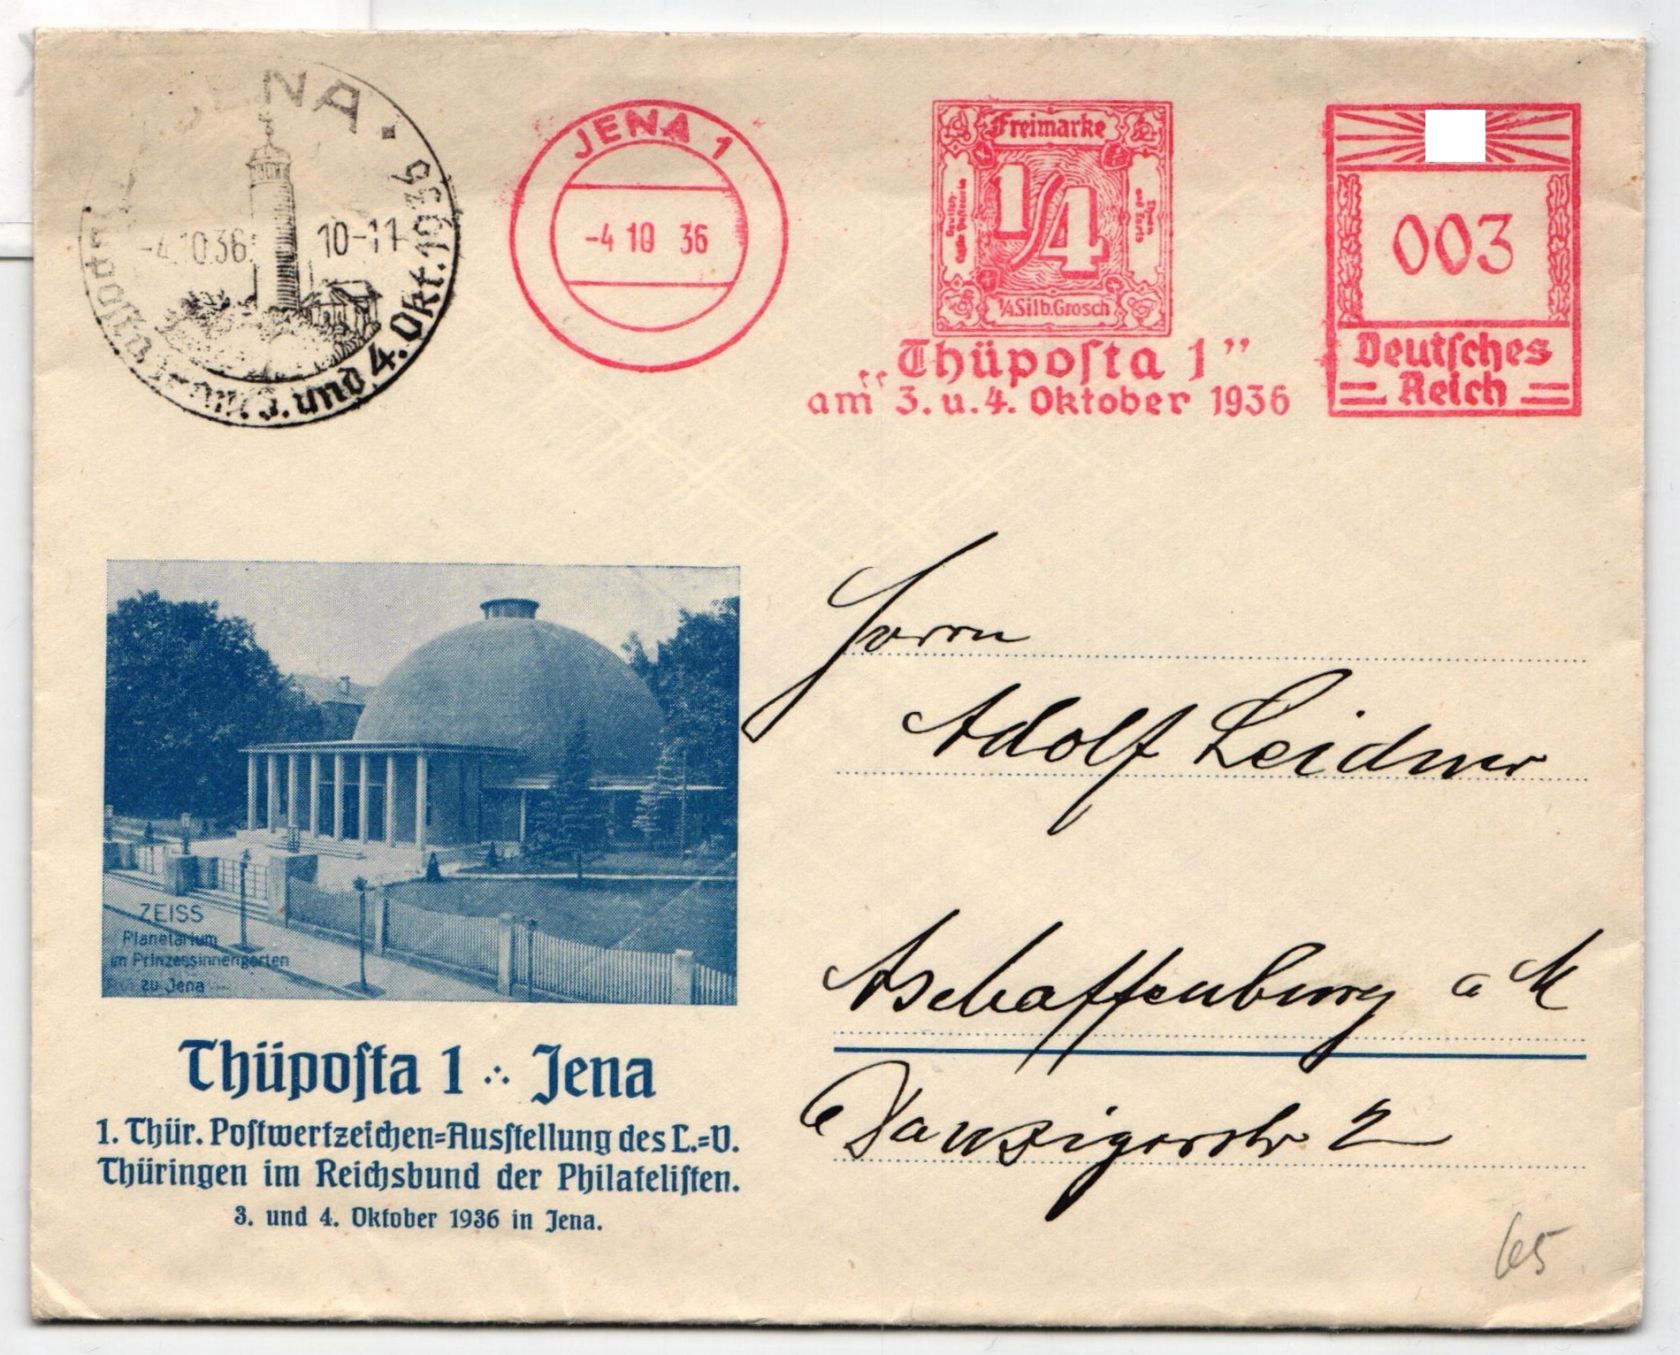 JENA
-4.10.36. 10-11
und 4. Okt. 1936
JENA 1
-4 10 36
Freimarke
1/4
1/4 Silb. Grosch
„Thüpoſta 1”
am 3. u. 4. Oktober 1936
003
Deutſches
Reich
Herrn
Adolf Leidner
Aschaffenburg a M
Danzigerstr 2
ZEISS
Planetarium
im Prinzessinnengarten
zu Jena
Thüpoſta 1 ∴ Jena
1. Thür. Poſtwertzeichen=Ausſtellung des L.=V.
Thüringen im Reichsbund der Philateliſten.
3. und 4. Oktober 1936 in Jena.
65